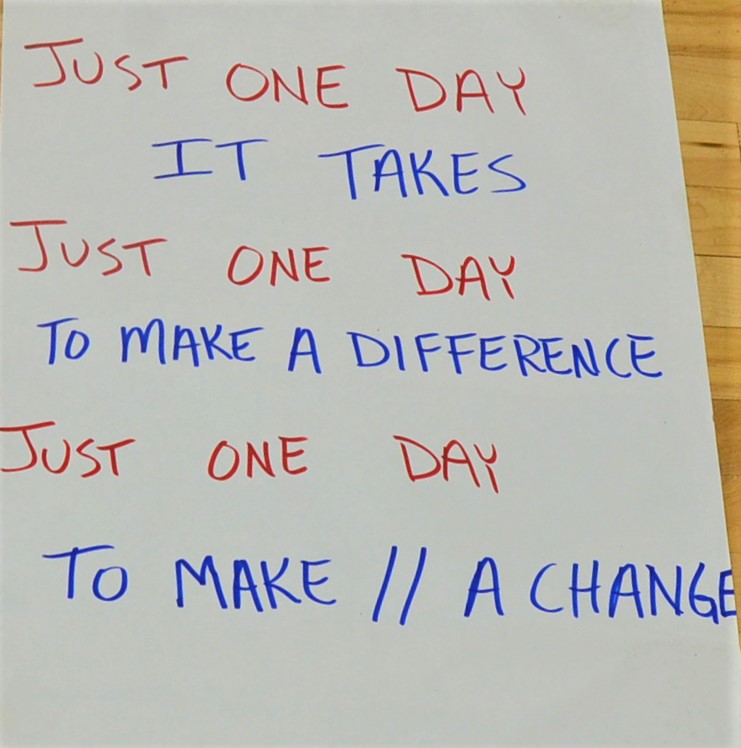 JUST ONE DAY
IT TAKES
JUST ONE DAY
TO MAKE A DIFFERENCE
JUST ONE DAY
TO MAKE // A CHANGE